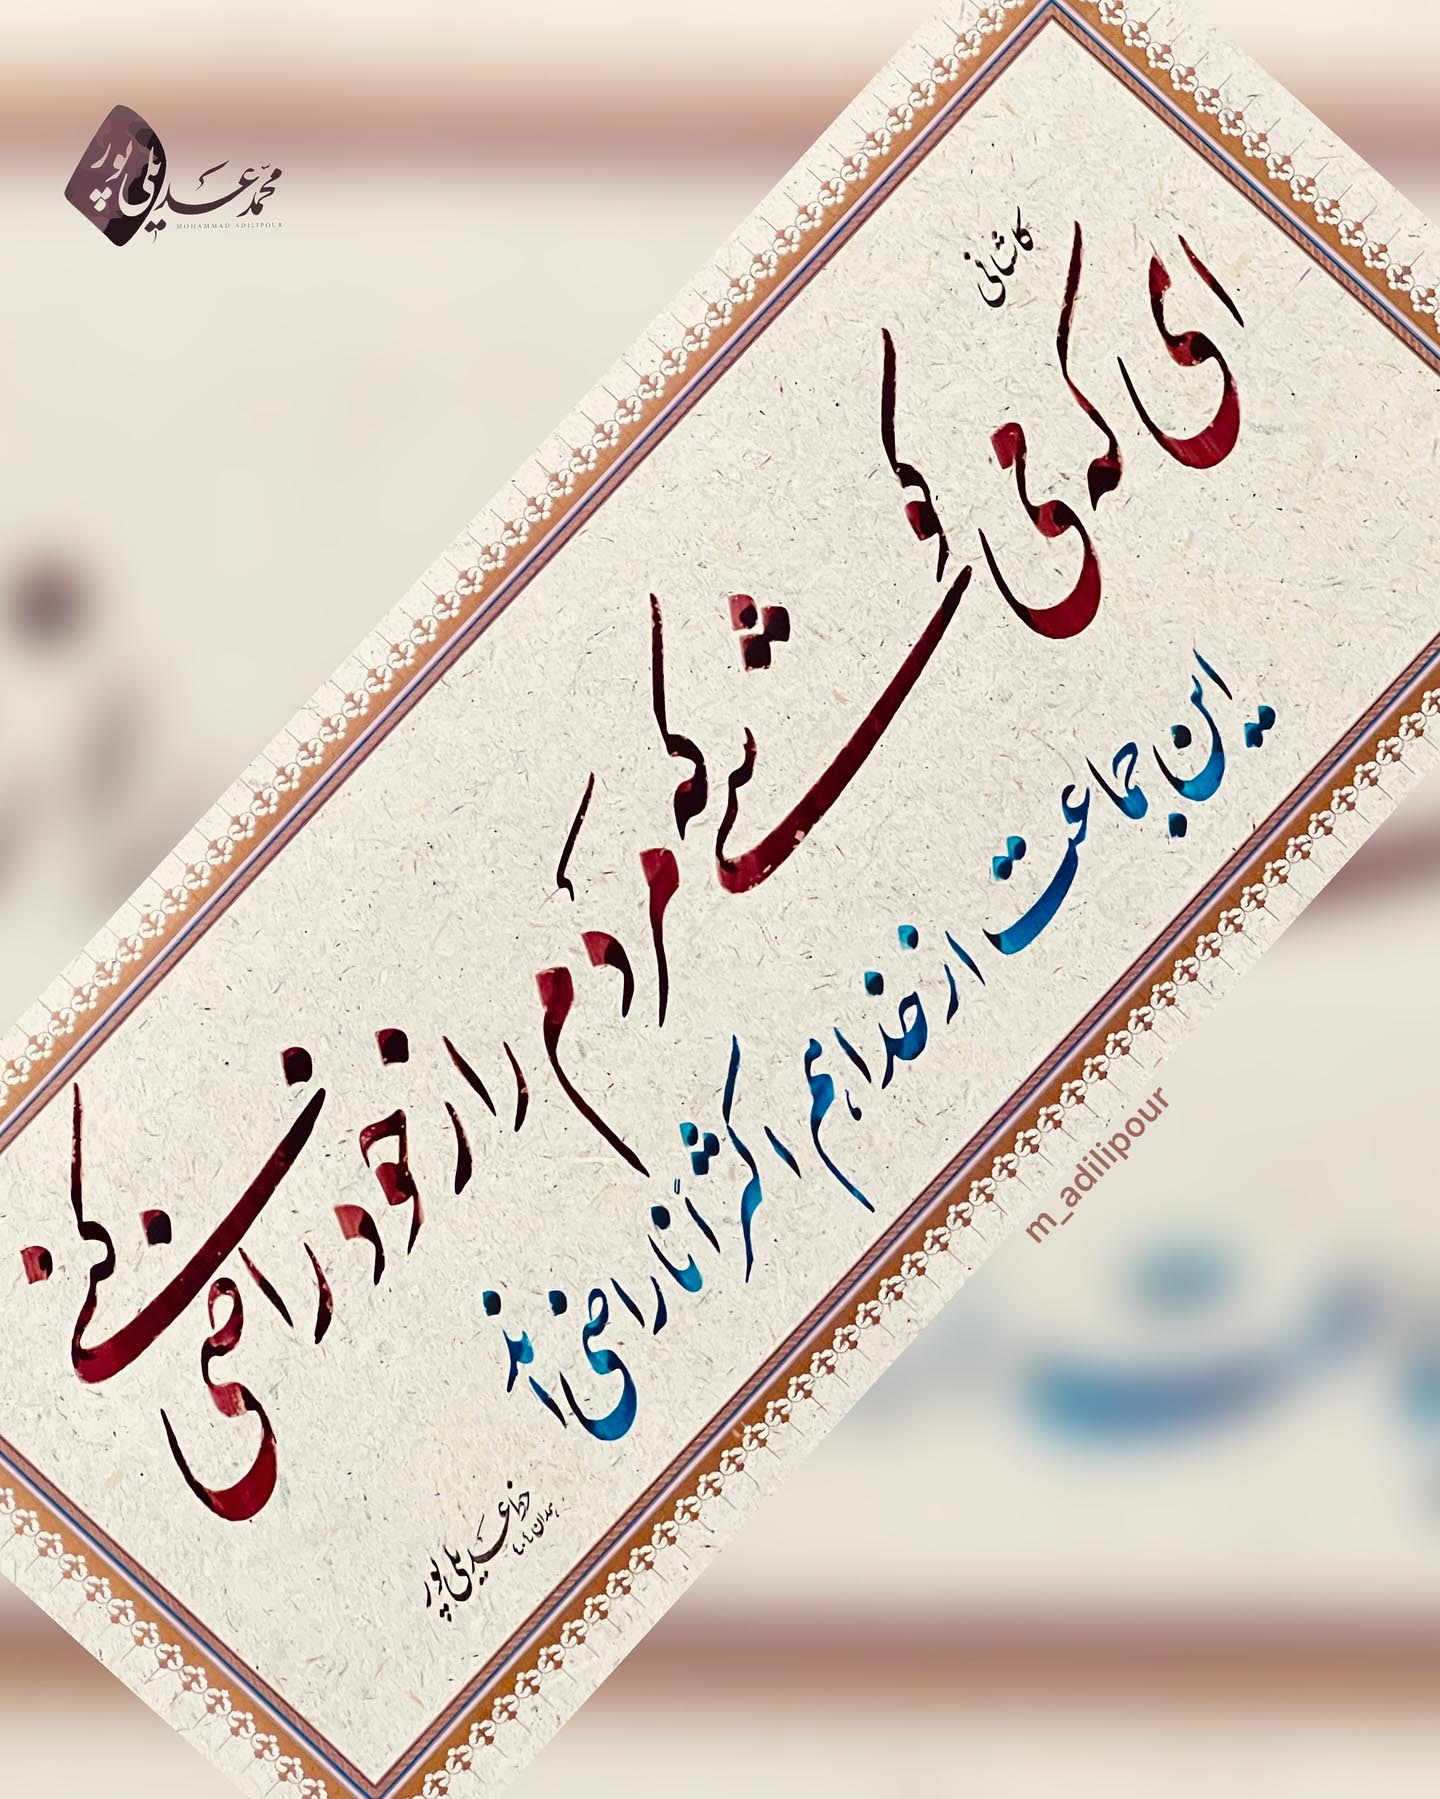 محمد عدیلی پور
MOHAMMAD ADILIPOUR
کاشانی
ای که می کوشی که مردم را ز خود راضی کنی
این جماعت از خدا هم اکثراً ناراضی اند
عدیلی پور
همدان
m_adilipour